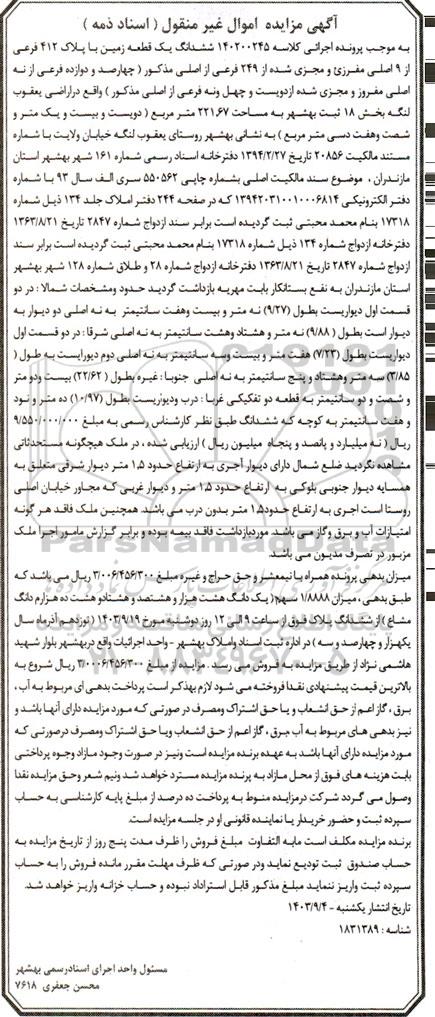 آگهی مزایده اموال غیر منقول ( اسناد ذمه )
به موجب پرونده اجرائی کلاسه ۱۴۰۲۰۰۲۴۵ ششدانگ یک قطعه زمین با پلاک ۴۱۲ فرعی
از ۹ اصلی مفرزئ و مجزی شده از ۲۴۹ فرعی از اصلی مذکور ( چهارصد و دوازده فرعی از نه
اصلی مفروز و مجزی شده ازدویست و چهل ونه فرعی از اصلی مذکور ) واقع دراراضی یعقوب
لنگه بخش ۱۸ ثبت بهشهر به مساحت ۲۲۱.۶۷ متر مربع ( دویست و بیست و یک متر و
شصت وهفت دسی متر مربع ) به نشانی بهشهر روستای یعقوب لنگه خیابان ولایت با شماره
مستند مالکیت ۲۰۸۵۶ تاریخ ۱۳۹۴/۲/۲۷ دفترخانه اسناد رسمی شماره ۱۶۱ شهر بهشهر استان
مازندران ، موضوع سند مالکیت اصلی بشماره چاپی ۵۵۰۵۶۲ سری الف سال ۹۳ با شماره
دفتر الکترونیکی ۱۳۹۴۲۰۳۱۰۰۱۰۰۰۶۸۱۴ که در صفحه ۲۴۴ دفتر املاک جلد ۱۳۴ ذیل شماره
۱۷۳۱۸ بنام محمد محبتی ثبت گردیده است برابر سند ازدواج شماره ۲۸۴۷ تاریخ ۱۳۶۳/۸/۲۱
دفترخانه ازدواج شماره ۱۳۴ ذیل شماره ۱۷۳۱۸ بنام محمد محبتی ثبت گردیده است برابر سند
ازدواج شماره ۲۸۴۷ تاریخ ۱۳۶۳/۸/۲۱ دفترخانه ازدواج شماره ۲۸ و طلاق شماره ۱۲۸ شهر بهشهر
استان مازندران به نفع بستانکار بابت مهریه بازداشت گردید حدود ومشخصات شمالا : در دو
قسمت اول دیواریست بطول (۹/۲۷) نه متر و بیست وهفت سانتیمتر به نه اصلی دو دیوار به
دیوار است بطول ( ۹/۸۸) نه متر و هشتاد وهشت سانتیمتر به نه اصلی شرقا : در دو قسمت اول
دیواریست بطول (۷/۲۳) هفت متر و بیست وسه سانتیمتر به نه اصلی دوم دیوراست به طول (
۳/۸۵) سه متر وهشتاد و پنج سانتیمتر به نه اصلی جنوبا : غیره بطول (۲۲/۶۲) بیست ودو متر
و شصت و دو سانتیمتر به قطعه دو تفکیکی غربا : درب ودیواریست بطول (۱۰/۹۷) ده متر و نود
و هفت سانتیمتر به کوچه که ششدانگ طبق نظر کارشناس رسمی به مبلغ ۹/۵۵۰/۰۰۰/۰۰۰
ریال ( نه میلیارد و پانصد و پنجاه میلیون ریال ) ارزیابی شده ، در ملک هیچگونه مستحدثاتی
مشاهده نگردید ضلع شمال دارای دیوار آجری به ارتفاع حدود ۱.۵ متر دیوار شرقی متعلق به
همسایه دیوار جنوبی بلوکی به ارتفاع حدود ۱.۵ متر و دیوار غربی که مجاور خیابان اصلی
روستا است اجری به ارتفاع حدود۱.۵ متر بدون درب می باشد. همچنین ملک فاقد هر گونه
امتیازات آب و برق وگاز می باشد. موردبازداشت فاقد بیمه بوده و برابر گزارش مامور اجرا ملک
مزبور در تصرف مدیون می باشد.
میزان بدهی پرونده همراه با نیمعشر و حق حراج و غیره مبلغ ۳/۰۰۶/۴۵۶/۳۰۰ ریال می باشد که
طبق بدهی ، میزان ۱/۸۸۸۸ سهم( یک دانگ هشت هزار و هشتصد و هشتادو هشت ده هزارم دانگ
مشاع ) از ششدانگ پلاک فوق از ساعت ۹ الی ۱۲ روز دوشنبه مورخ ۱۴۰۳/۹/۱۹ ( نوزدهم آذرماه سال
یکهزار و چهارصد و سه ) در اداره ثبت اسناد واملاک بهشهر - واحد اجرائیات واقع دربهشهر بلوار شهید
هاشمی نژاد از طریق مزایده به فروش می رسد . مزایده از مبلغ ۳/۰۰۰۶/۴۵۶/۳۰۰ ریال شروع به
بالاترین قیمت پیشنهادی نقدا فروخته می شود لازم بهذکر است پرداخت بدهی ای مربوط به آب ،
برق ، گاز اعم از حق انشعاب و یا حق اشتراک ومصرف در صورتی که مورد مزایده دارای آنها باشد و
نیز بدهی های مربوط به آب ،برق ، گاز اعم از حق انشعاب ویا حق اشتراک ومصرف درصورتی که
مورد مزایده دارای آنها باشد به عهده برنده مزایده است ونیز در صورت وجود مازاد وجوه پرداختی
بابت هزینه های فوق از محل مازاد به برنده مزایده مسترد خواهد شد ونیم شعر وحق مزایده نقدا
وصول می گردد شرکت درمزایده منوط به پرداخت ده درصد از مبلغ پایه کارشناسی به حساب
سپرده ثبت و حضور خریدار یا نماینده قانونی او در جلسه مزایده است.
برنده مزایده مکلف است مابه التفاوت مبلغ فروش را ظرف مدت پنج روز از تاریخ مزایده به
حساب صندوق ثبت تودیع نماید ودر صورتی که ظرف مهلت مقرر مانده فروش را به حساب
سپرده ثبت واریز ننماید مبلغ مذکور قابل استراداد نبوده و حساب خزانه واریز خواهد شد.
تاریخ انتشار یکشنبه - ۱۴۰۳/۹/۴
شناسه : ۱۸۳۱۳۸۹
مسئول واحد اجرای اسنادرسمی بهشهر
محسن جعفری ۷۶۱۸
ParsNamadData
۰۲۱-۸۸۳۴۹۶۷۰-۵